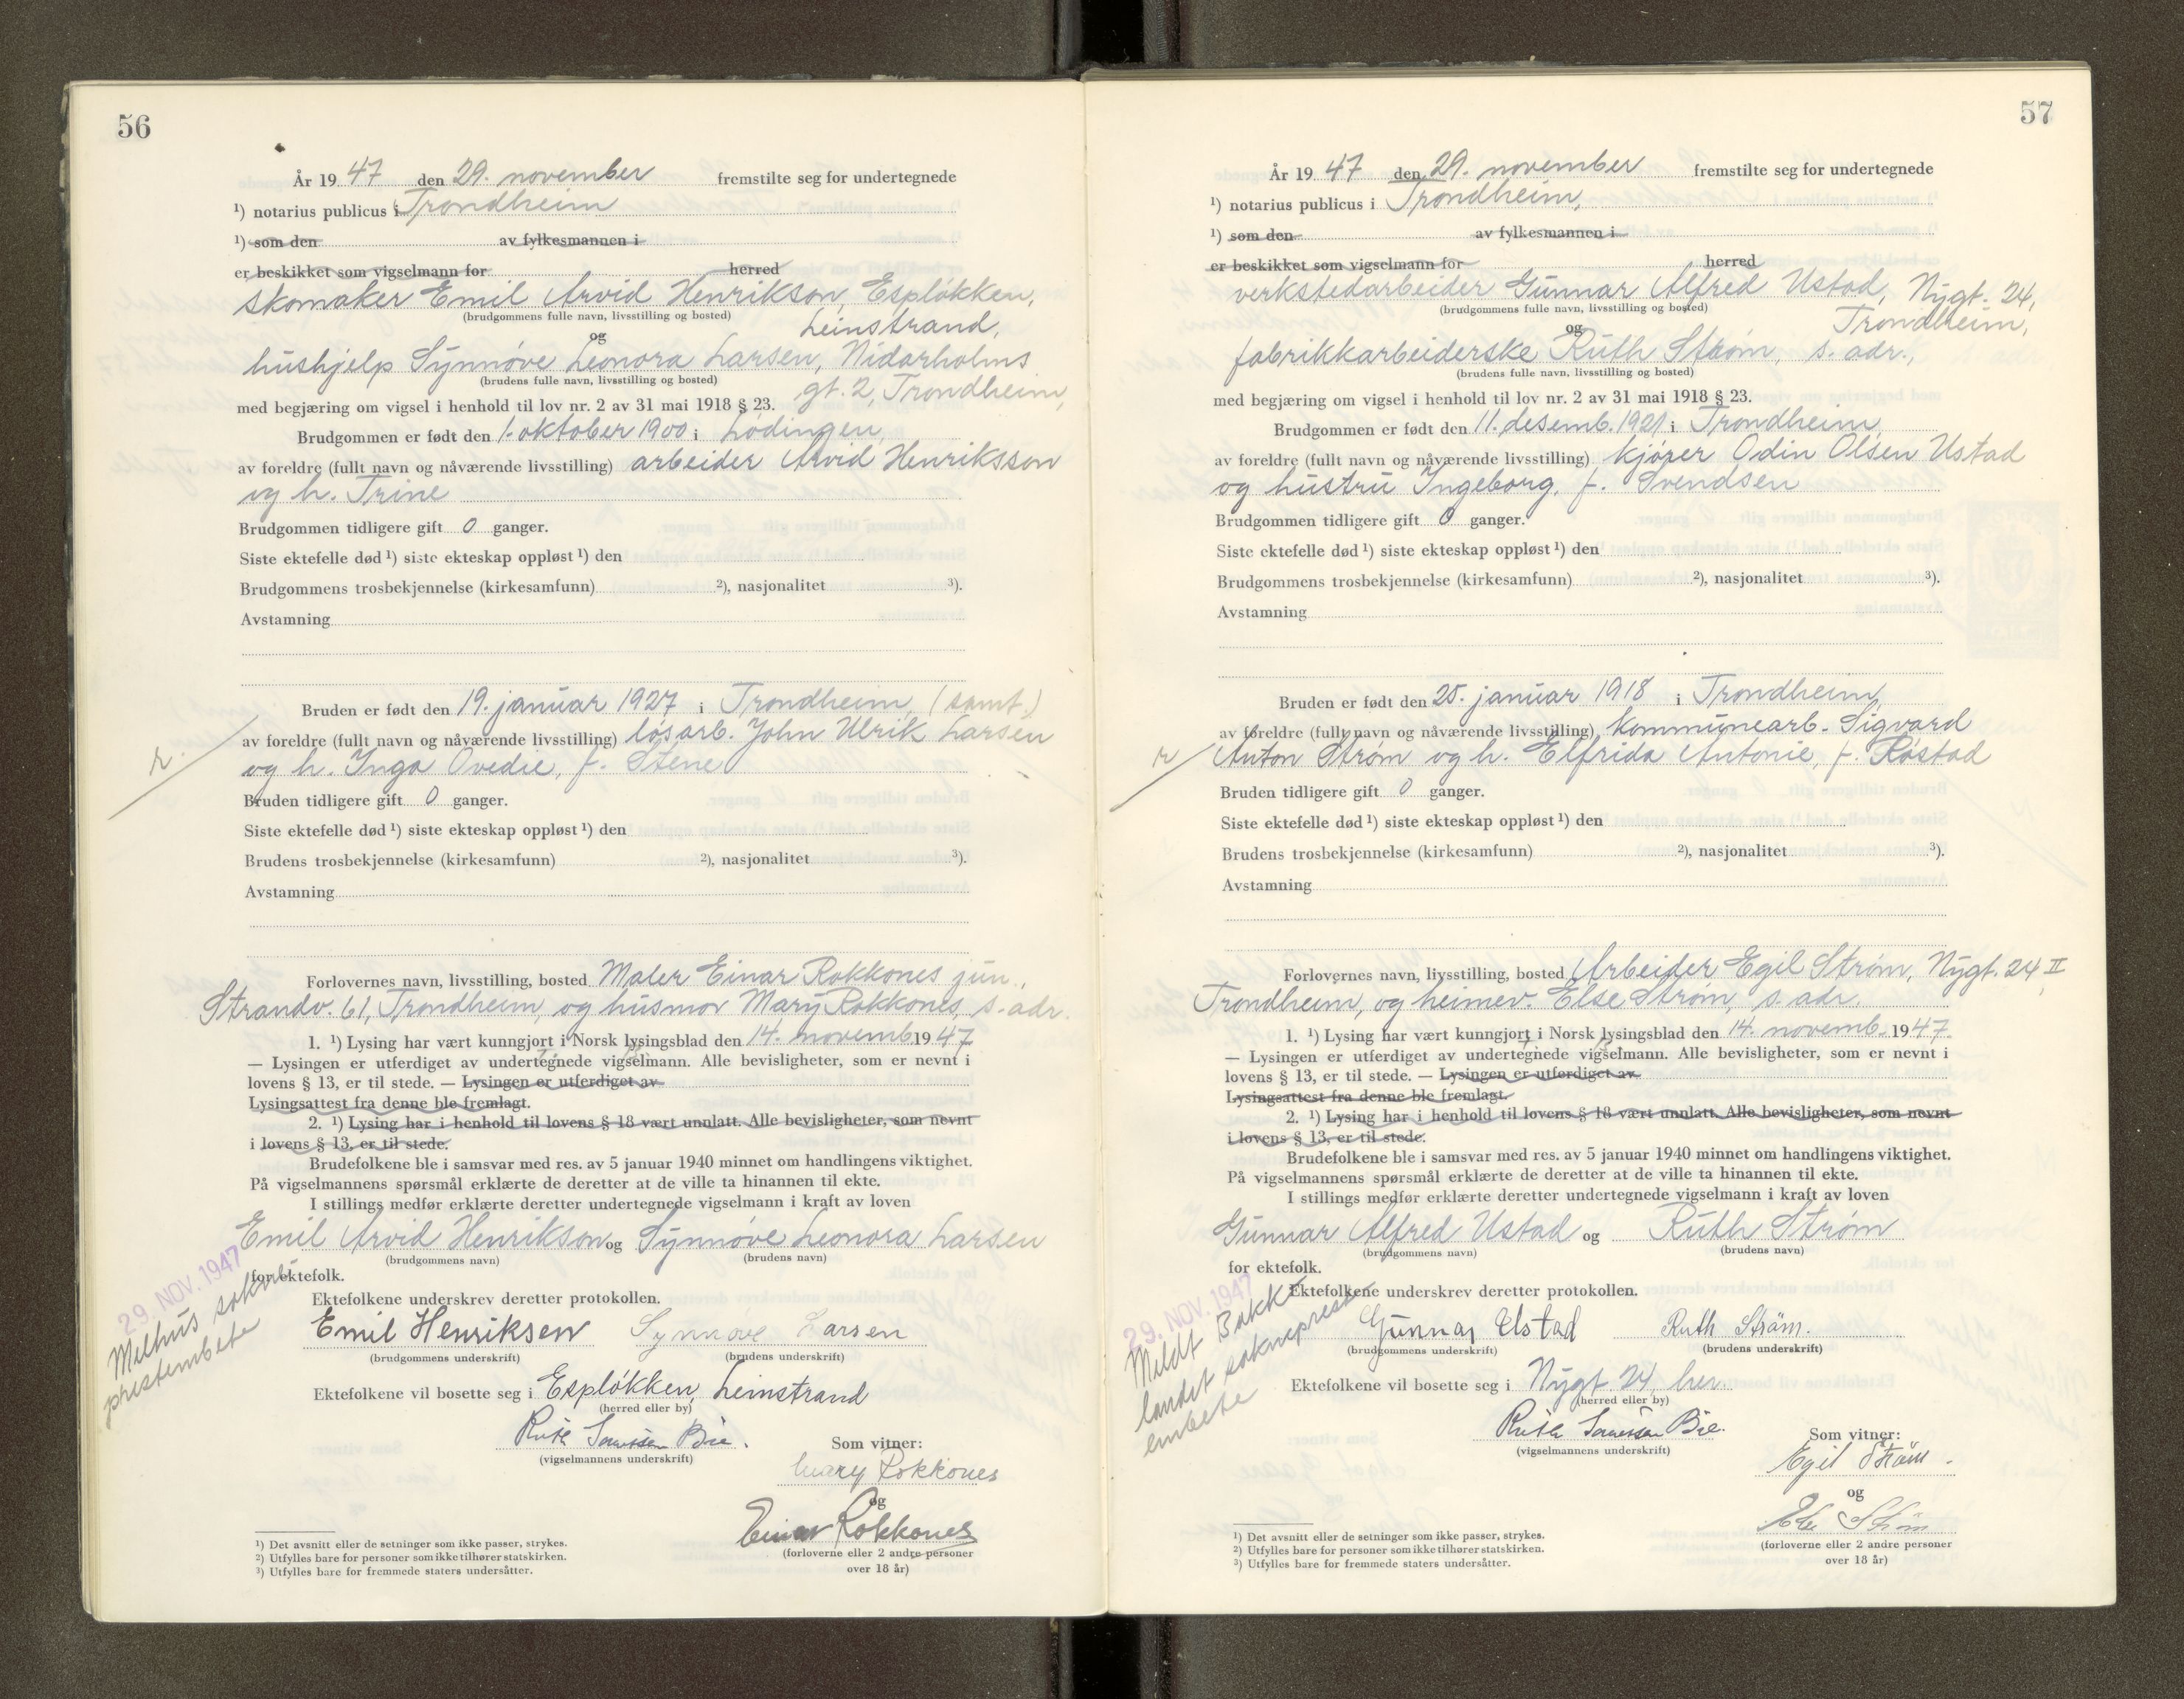 56
År 19 47 den 29. november fremstilte seg for undertegnede
¹) notarius publicus i Trondheim
¹) som den av fylkesmannen i
er beskikket som vigselmann for herred
skomaker Emil Arvid Henrikson, Espløkken,
(brudgommens fulle navn, livsstilling og bosted)
Leinstrand,
og
hushjelp Synnøve Leonora Larsen, Nidarholms
(brudens fulle navn, livsstilling og bosted)
gt. 2, Trondheim,
med begjæring om vigsel i henhold til lov nr. 2 av 31 mai 1918 § 23.
Brudgommen er født den 1. oktober 1900 i Lødingen,
av foreldre (fullt navn og nåværende livsstilling) arbeider Arvid Henriksson
og h. Trine
Brudgommen tidligere gift 0 ganger.
Siste ektefelle død ¹) siste ekteskap oppløst ¹) den
Brudgommens trosbekjennelse (kirkesamfunn) ²), nasjonalitet ³).
Avstamning
Bruden er født den 19. januar 1927 i Trondheim, (samt.)
av foreldre (fullt navn og nåværende livsstilling) løsarb. John Ulrik Larsen
r.
og h. Inga Ovedie, f. Stene
Bruden tidligere gift 0 ganger.
Siste ektefelle død ¹) siste ekteskap oppløst ¹) den
Brudens trosbekjennelse (kirkesamfunn) ²), nasjonalitet ³).
Avstamning
Forlovernes navn, livsstilling, bosted Maler Einar Rokkones jun.,
Strandv. 61, Trondheim, og husmor Mary Rokkones, s. adr.
1. ¹) Lysing har vært kunngjort i Norsk lysingsblad den 14. novemb. 19 47
— Lysingen er utferdiget av undertegnede vigselmann. Alle bevisligheter, som er nevnt i
lovens § 13, er til stede. — Lysingen er utferdiget av
Lysingsattest fra denne ble fremlagt.
2. ¹) Lysing har i henhold til lovens § 18 vært unnlatt. Alle bevisligheter, som nevnt
i lovens § 13, er til stede.
Brudefolkene ble i samsvar med res. av 5 januar 1940 minnet om handlingens viktighet.
På vigselmannens spørsmål erklærte de deretter at de ville ta hinannen til ekte.
I stillings medfør erklærte deretter undertegnede vigselmann i kraft av loven
Emil Arvid Henrikson og Synnøve Leonora Larsen
(brudgommens navn) (brudens navn)
for ektefolk.
29. NOV. 1947
Melhus
prestembete
Ektefolkene underskrev deretter protokollen.
Emil Henriksen Synnøve Larsen
(brudgommens underskrift) (brudens underskrift)
Ektefolkene vil bosette seg i Espløkken, Leinstrand
(herred eller by)
(vigselmannens underskrift)
Som vitner:
Mary Rokkones
og
Einar Rokkones
(forloverne eller 2 andre personer
over 18 år)
¹) Det avsnitt eller de setninger som ikke passer, strykes.
²) Utfylles bare for personer som ikke tilhører statskirken.
³) Utfylles bare for fremmede staters undersåtter.
57
År 19 47 den 29. november fremstilte seg for undertegnede
¹) notarius publicus i Trondheim,
¹) som den av fylkesmannen i
er beskikket som vigselmann for herred
verkstedarbeider Gunnar Alfred Ustad, Nygt. 24,
(brudgommens fulle navn, livsstilling og bosted)
Trondheim,
og
fabrikkarbeiderske Ruth Strøm, s. adr.,
(brudens fulle navn, livsstilling og bosted)
med begjæring om vigsel i henhold til lov nr. 2 av 31 mai 1918 § 23.
Brudgommen er født den 11. desemb. 1921 i Trondheim,
av foreldre (fullt navn og nåværende livsstilling) kjører Odin Olsen Ustad
og hustru Ingeborg, f. Svendsen
Brudgommen tidligere gift 0 ganger.
Siste ektefelle død ¹) siste ekteskap oppløst ¹) den
Brudgommens trosbekjennelse (kirkesamfunn) ²), nasjonalitet ³).
Avstamning
Bruden er født den 25. januar 1918 i Trondheim,
av foreldre (fullt navn og nåværende livsstilling) kommunearb. Sigvard
r
Anton Strøm og h. Elfrida Antonie, f. Røstad
Bruden tidligere gift 0 ganger.
Siste ektefelle død ¹) siste ekteskap oppløst ¹) den
Brudens trosbekjennelse (kirkesamfunn) ²), nasjonalitet ³).
Avstamning
Forlovernes navn, livsstilling, bosted Arbeider Egil Strøm, Nygt. 24 II
Trondheim, og heimev. Else Strøm, s. adr.
1. ¹) Lysing har vært kunngjort i Norsk lysingsblad den 14. novemb. 19 47
— Lysingen er utferdiget av undertegnede vigselmann. Alle bevisligheter, som er nevnt i
lovens § 13, er til stede. — Lysingen er utferdiget av
Lysingsattest fra denne ble fremlagt.
2. ¹) Lysing har i henhold til lovens § 18 vært unnlatt. Alle bevisligheter, som nevnt
i lovens § 13, er til stede.
Brudefolkene ble i samsvar med res. av 5 januar 1940 minnet om handlingens viktighet.
På vigselmannens spørsmål erklærte de deretter at de ville ta hinannen til ekte.
I stillings medfør erklærte deretter undertegnede vigselmann i kraft av loven
Gunnar Alfred Ustad og Ruth Strøm
(brudgommens navn) (brudens navn)
for ektefolk.
29. NOV. 1947
Meldt Bakk
landet sokneprest
embete
Ektefolkene underskrev deretter protokollen.
Gunnar Ustad Ruth Strøm.
(brudgommens underskrift) (brudens underskrift)
Ektefolkene vil bosette seg i Nygt 24, her.
(herred eller by)
(vigselmannens underskrift)
Som vitner:
Egil Strøm.
og
Else Strøm
(forloverne eller 2 andre personer
over 18 år)
¹) Det avsnitt eller de setninger som ikke passer, strykes.
²) Utfylles bare for personer som ikke tilhører statskirken.
³) Utfylles bare for fremmede staters undersåtter.